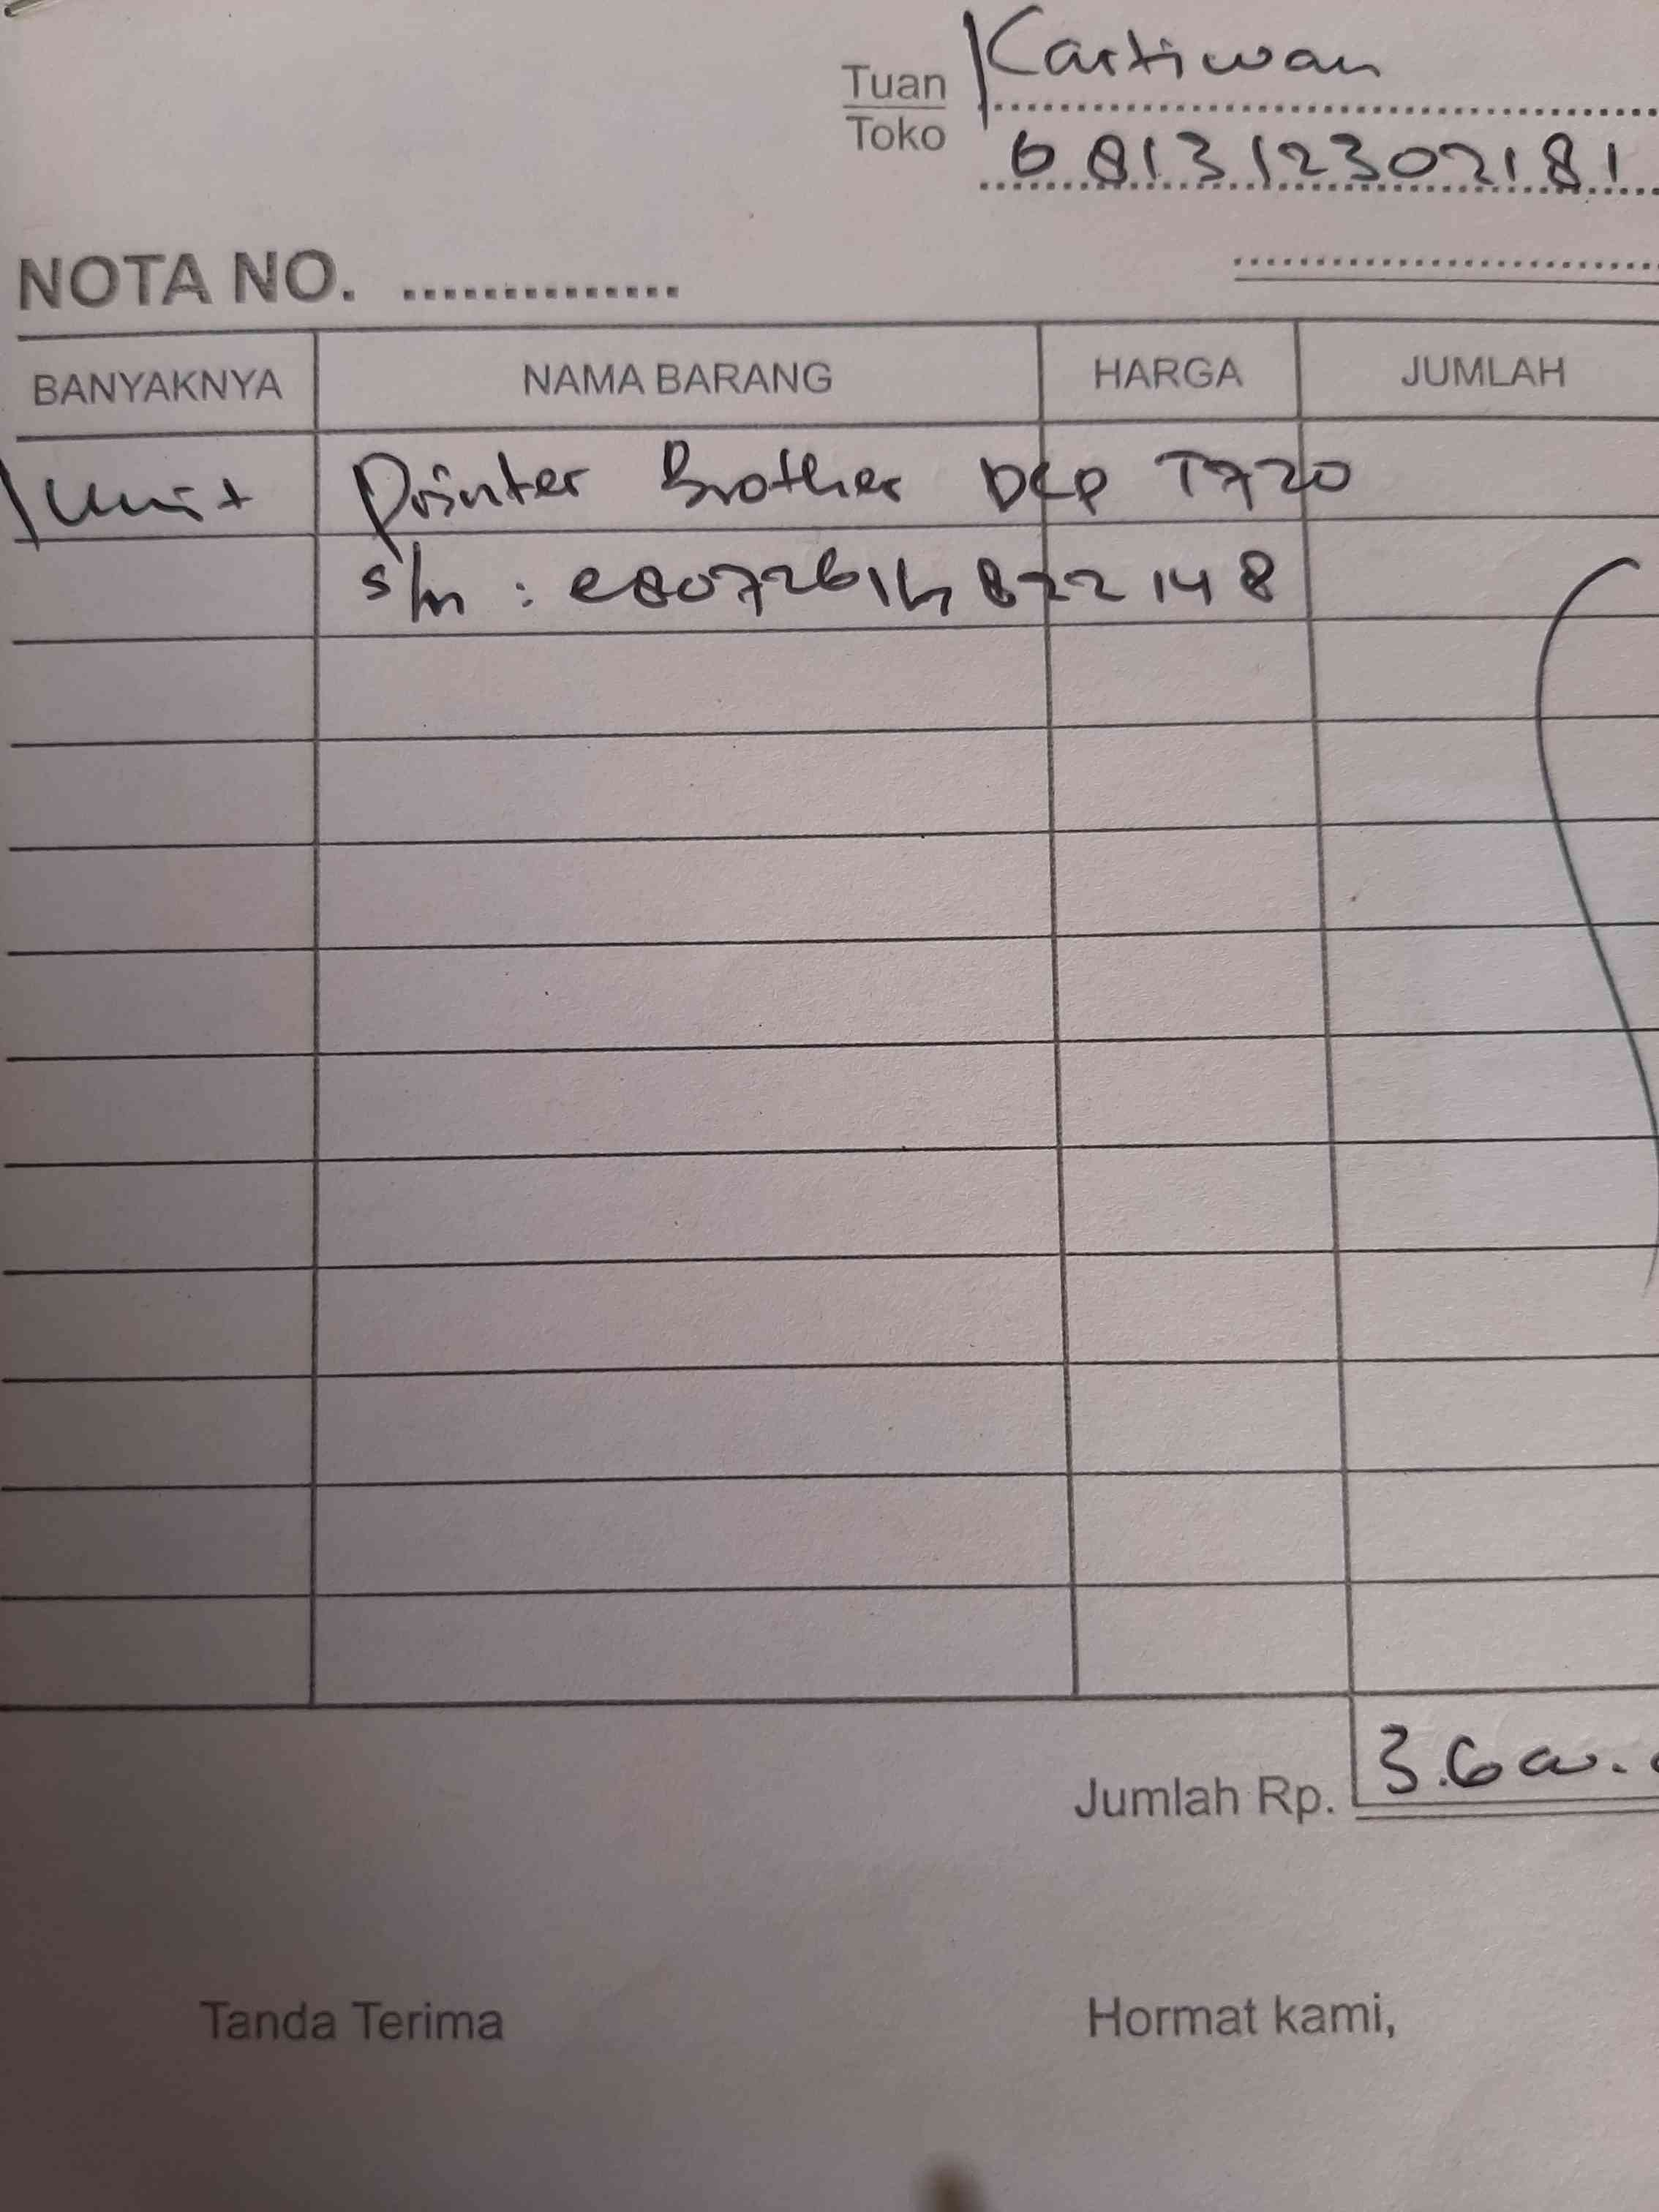 Tuan Kartiwan
Toko 081312302181
NOTA NO. ...............
BANYAKNYA NAMA BARANG HARGA JUMLAH
1 Unit Printer Brother DCP T720
s/n : E80726 822148
Jumlah Rp. 3.600.
Tanda Terima Hormat kami,